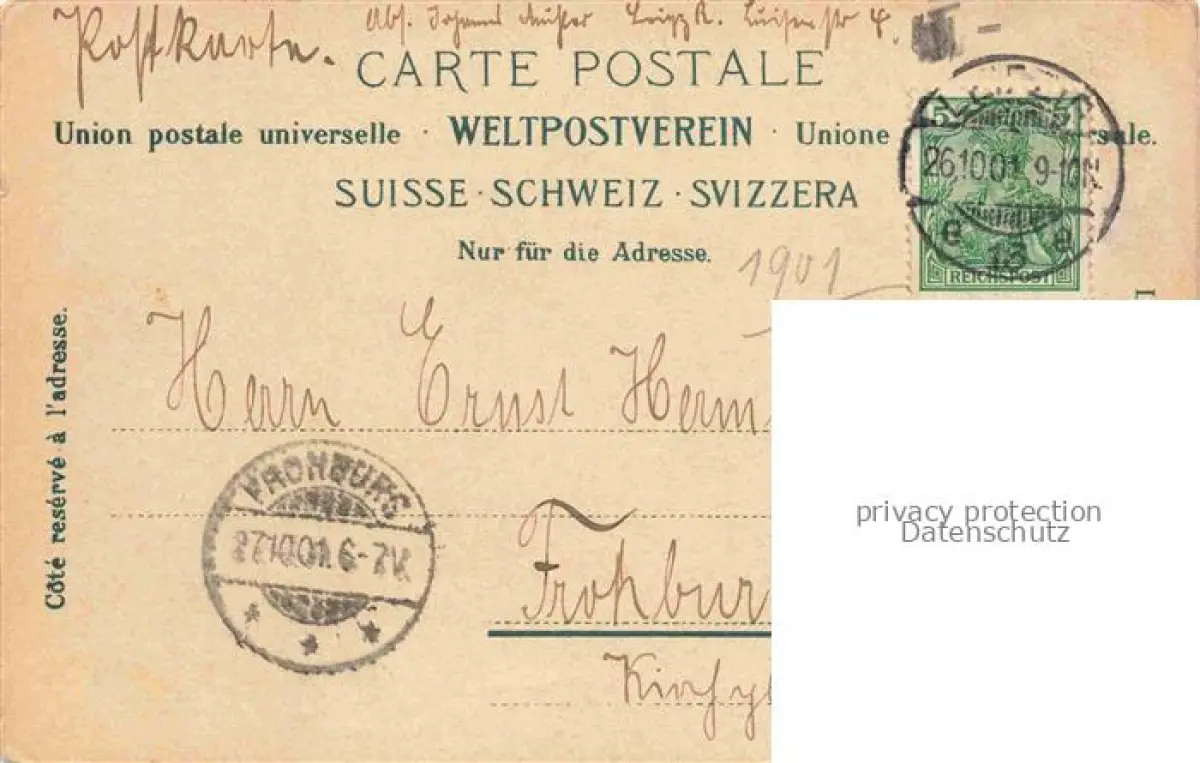 Postkarte. Abs. Johannes Leipz R. Luisenstr 4.
CARTE POSTALE
Union postale universelle · WELTPOSTVEREIN · Unione sale.
SUISSE · SCHWEIZ · SVIZZERA
Nur für die Adresse.
1901
LEIPZIG
26.10.01. 9-10N
e 13 e
5
REICHSPOST
Côté resérvé à l'adresse.
Herrn Ernst Herm
FROHBURG
27.10.01. 6-7V.
* * *
Frohbur
privacy protection
Datenschutz